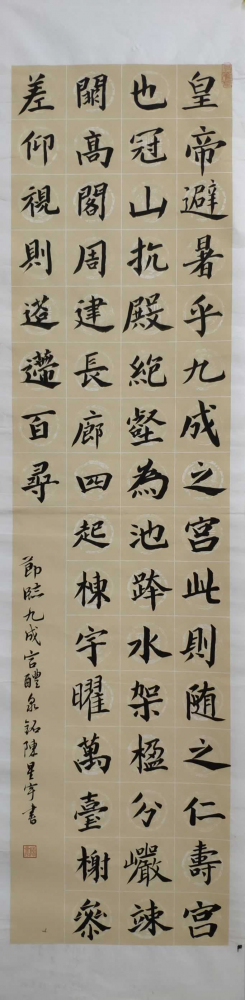 皇帝避暑乎九成之宫此則随之仁壽宫
也冠山抗殿絶壑為池跨水架楹分巖竦
闕高閣周建長廊四起棟宇曜葛臺榭叅
差仰視則迢遰百尋
節臨九成宫醴泉銘陳星宇書